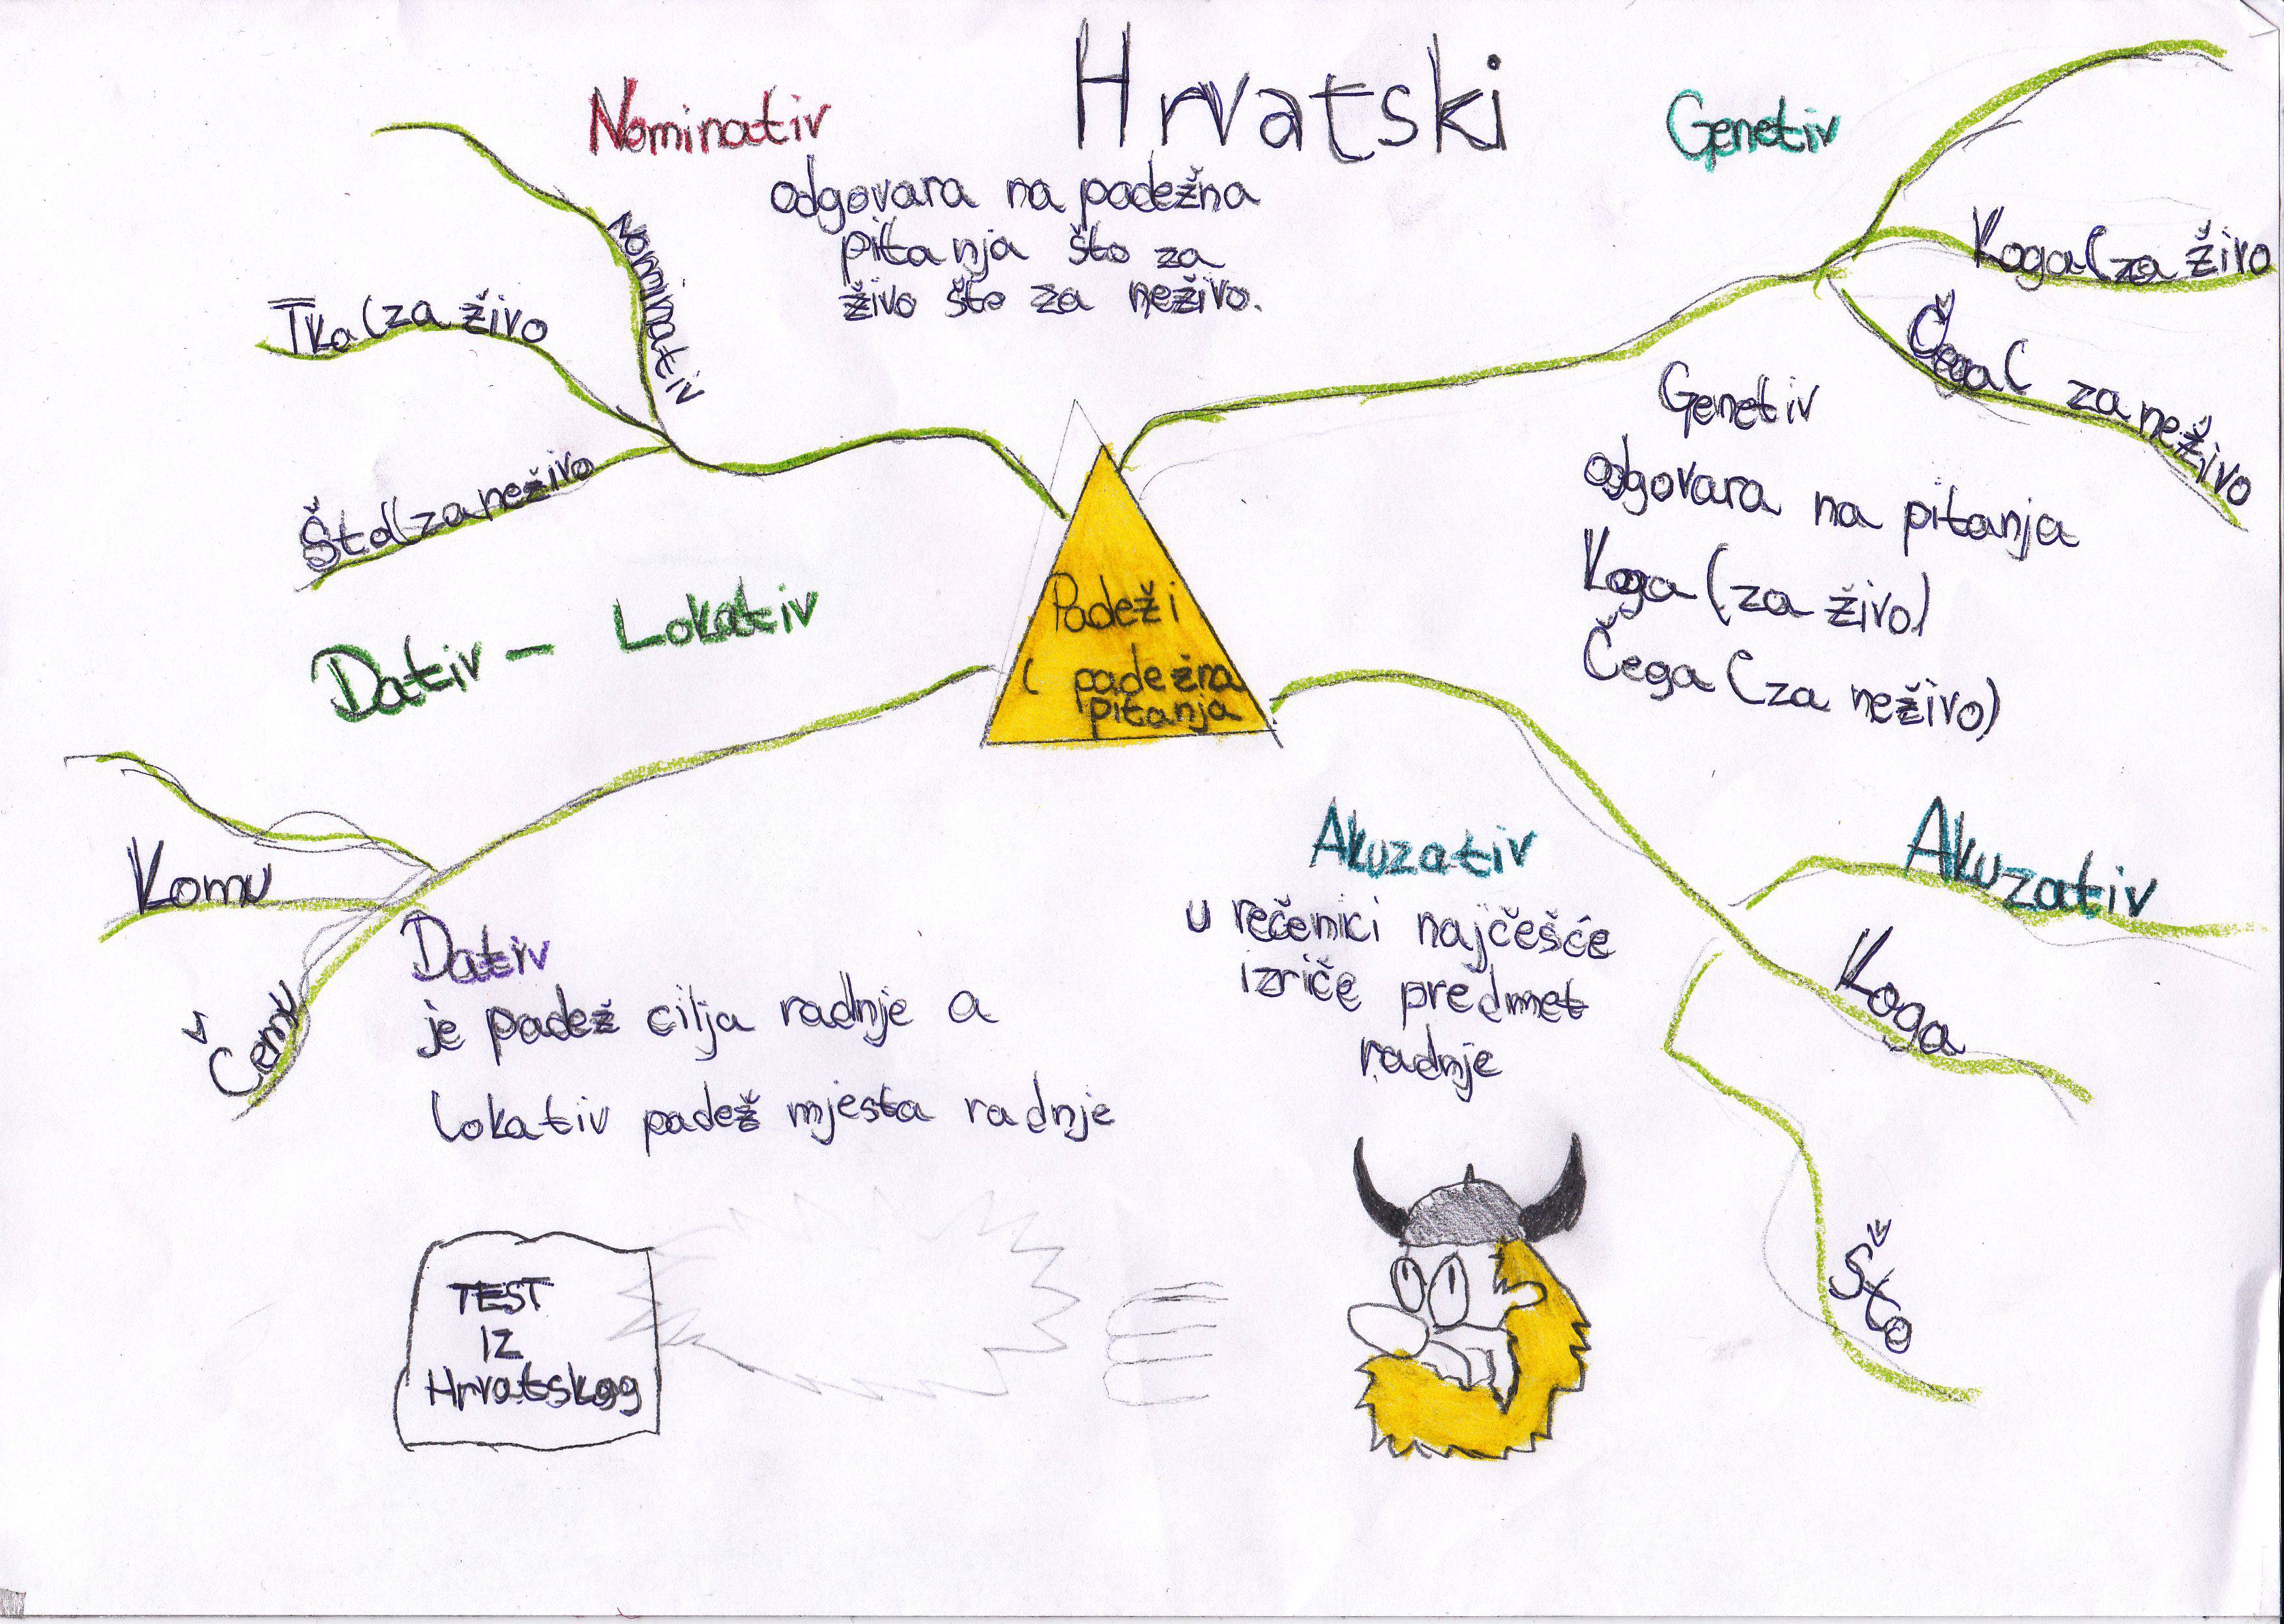 Hrvatski
Nominativ
odgovara na padežna
pitanja što za
živo što za neživo.
Nominativ
Tko (za živo
Što (za neživo
Genetiv
Koga (za živo
Čega ( za neživo
Genetiv
odgovara na pitanja
Koga (za živo)
Čega (za neživo)
Padeži
( padežna
pitanja
Dativ - Lokativ
Komu
Čemu
Dativ
je padež cilja radnje a
lokativ padež mjesta radnje
Akuzativ
u rečenici najčešće
izriče predmet
radnje
Akuzativ
Koga
Što
TEST
IZ
Hrvatskog